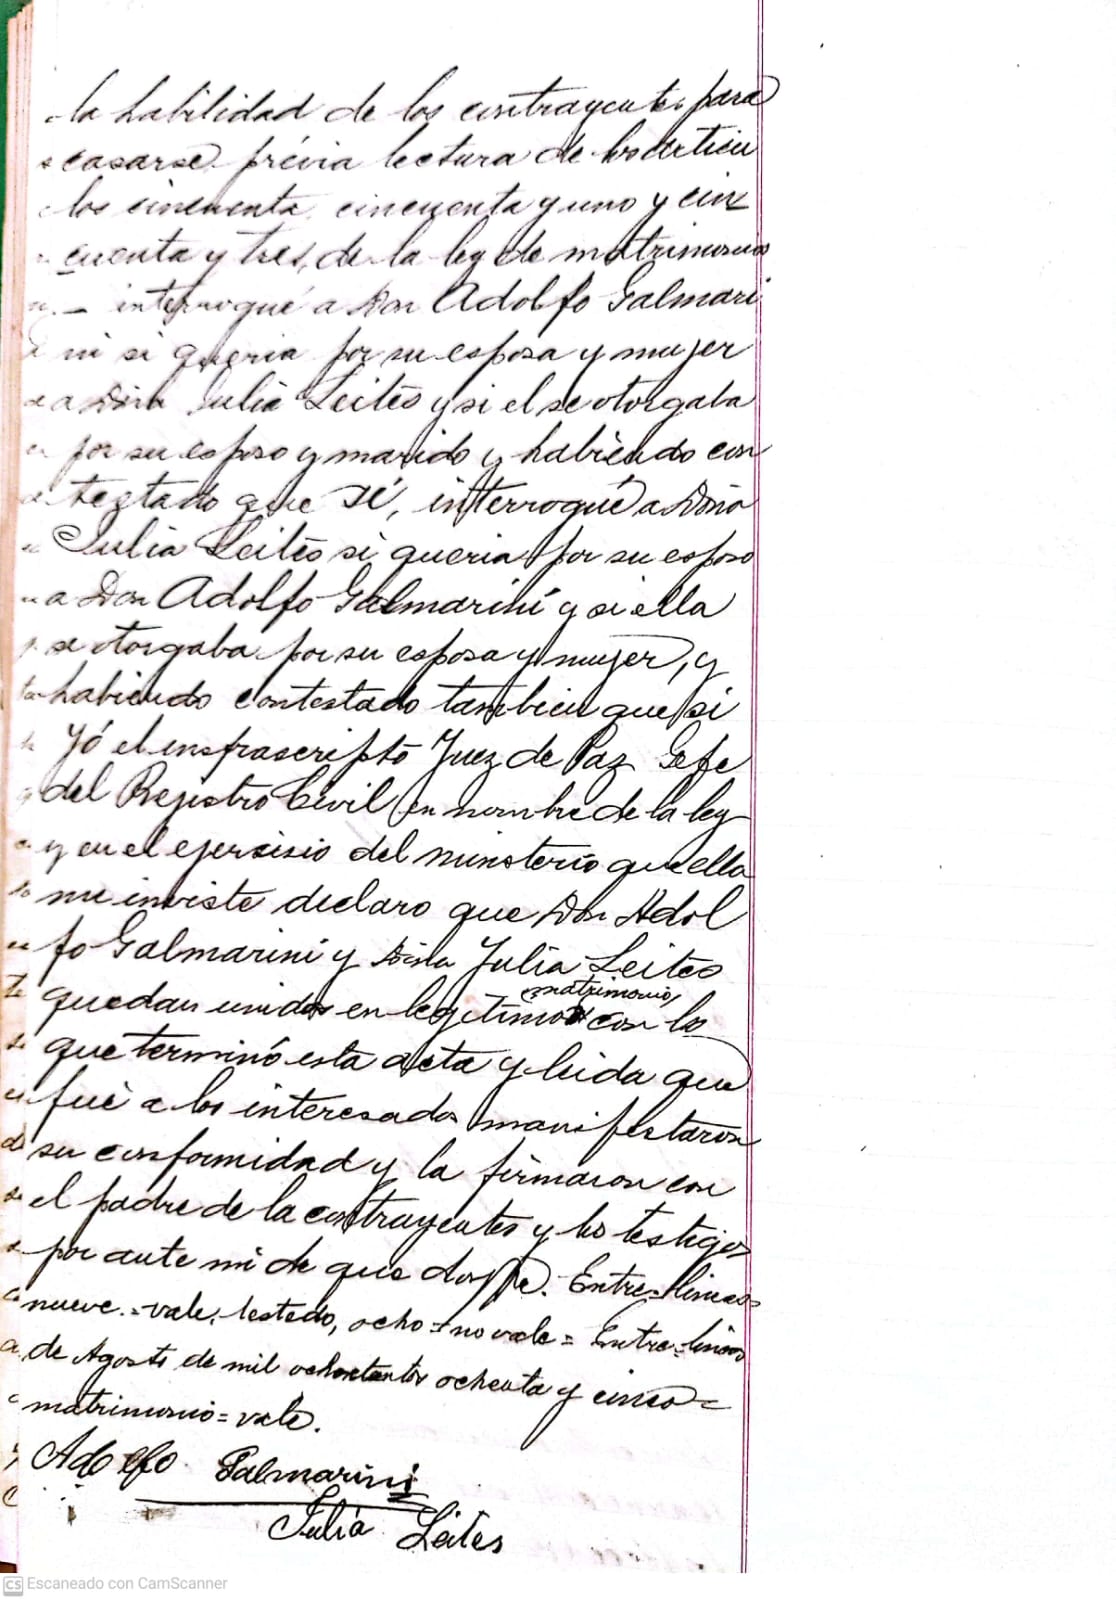 la habilidad de los contrayentes para
casarse, prévia lectura de los articu
los cincuenta, cincuenta y uno y cin
cuenta y tres, de la ley de matrimonio
interrogué a Don Adolfo Galmari
ni si queria por su esposa y mujer
a Doña Julia Leites y si el se otorgaba
por su esposo y marido y habiendo con
testado que sí, interrogué a Doña
Julia Leites si queria por su esposo
a Don Adolfo Galmarini y si ella
se otorgaba por su esposa y mujer, y
habiendo contestado tambien que si
Yó el infrascripto Juez de Paz Gefe
del Rejistro Civil en nombre de la ley
y en el ejersisio del ministerio que ella
me inviste declaro que Don Adol
fo Galmarini y Doña Julia Leites
matrimonio,
quedan unidos en legitimo con lo
que terminó esta acta y leida que
fué a los interesados manifestaron
su conformidad y la firmaron con
el padre de la contrayentes y los testigos
por ante mi de que doy fé. Entre-lineas
nueve.=vale, testado, ocho=no vale= Entre-lineas
de Agosto de mil ochocientos ochenta y cinco=
matrimonio=vale.
Adolfo Galmarini
Julia Leites
CS Escaneado con CamScanner